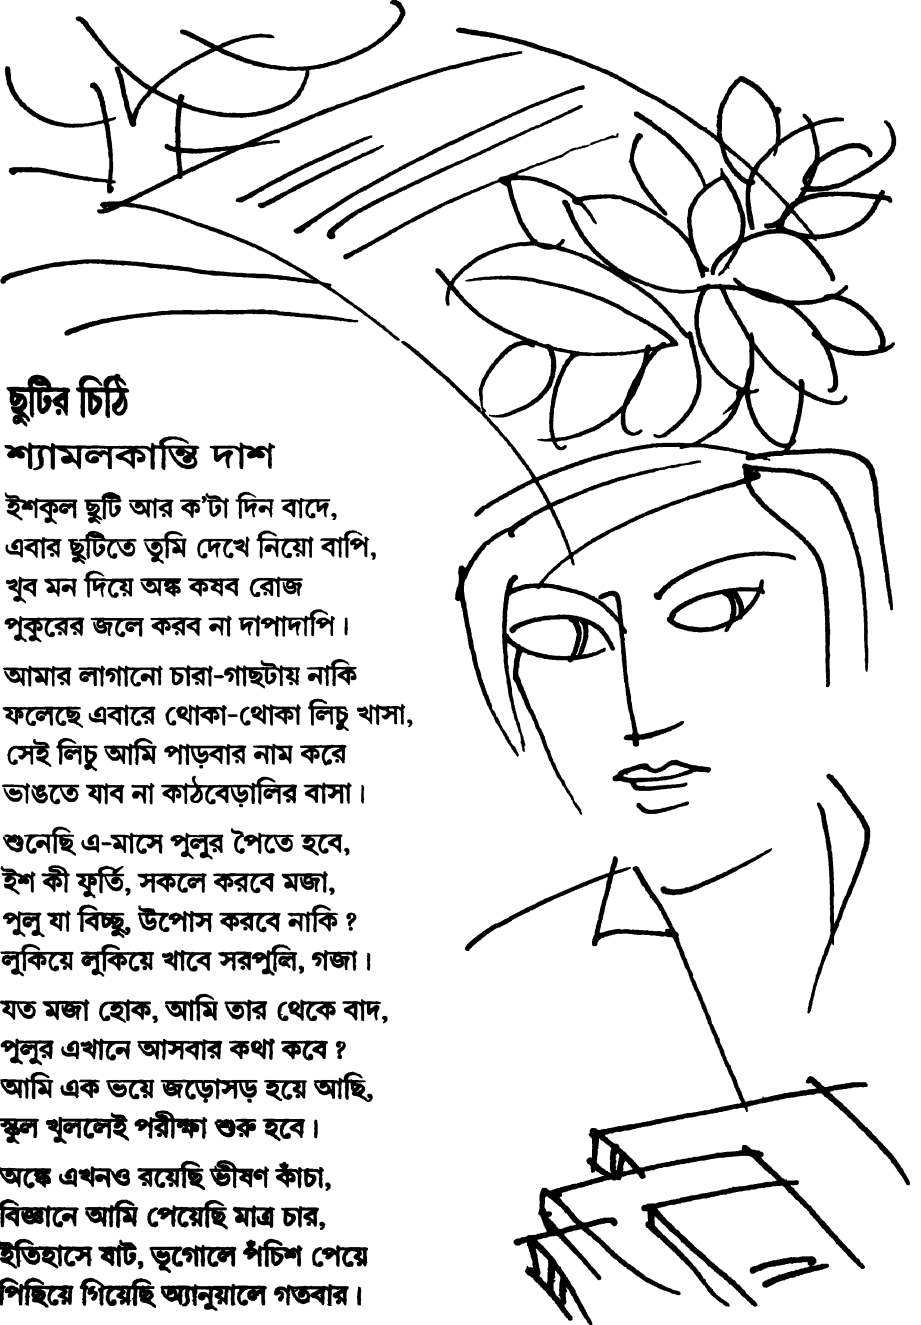 ছুটির চিঠি
শ্যামলকান্তি দাশ
ইশকুল ছুটি আর ক'টা দিন বাদে,
এবার ছুটিতে তুমি দেখে নিয়ো বাপি,
খুব মন দিয়ে অঙ্ক কষব রোজ
পুকুরের জলে করব না দাপাদাপি।
আমার লাগানো চারা-গাছটায় নাকি
ফলেছে এবারে থোকা-থোকা লিচু খাসা,
সেই লিচু আমি পাড়বার নাম করে
ভাঙতে যাব না কাঠবেড়ালির বাসা।
শুনেছি এ-মাসে পুলুর পৈতে হবে,
ইশ কী ফুর্তি, সকলে করবে মজা,
পুলু যা বিচ্ছু, উপোস করবে নাকি ?
লুকিয়ে লুকিয়ে খাবে সরপুলি, গজা।
যত মজা হোক, আমি তার থেকে বাদ,
পুলুর এখানে আসবার কথা কবে ?
আমি এক ভয়ে জড়োসড় হয়ে আছি,
স্কুল খুললেই পরীক্ষা শুরু হবে।
অঙ্কে এখনও রয়েছি ভীষণ কাঁচা,
বিজ্ঞানে আমি পেয়েছি মাত্র চার,
ইতিহাসে ষাট, ভূগোলে পঁচিশ পেয়ে
পিছিয়ে গিয়েছি অ্যানুয়ালে গতবার।